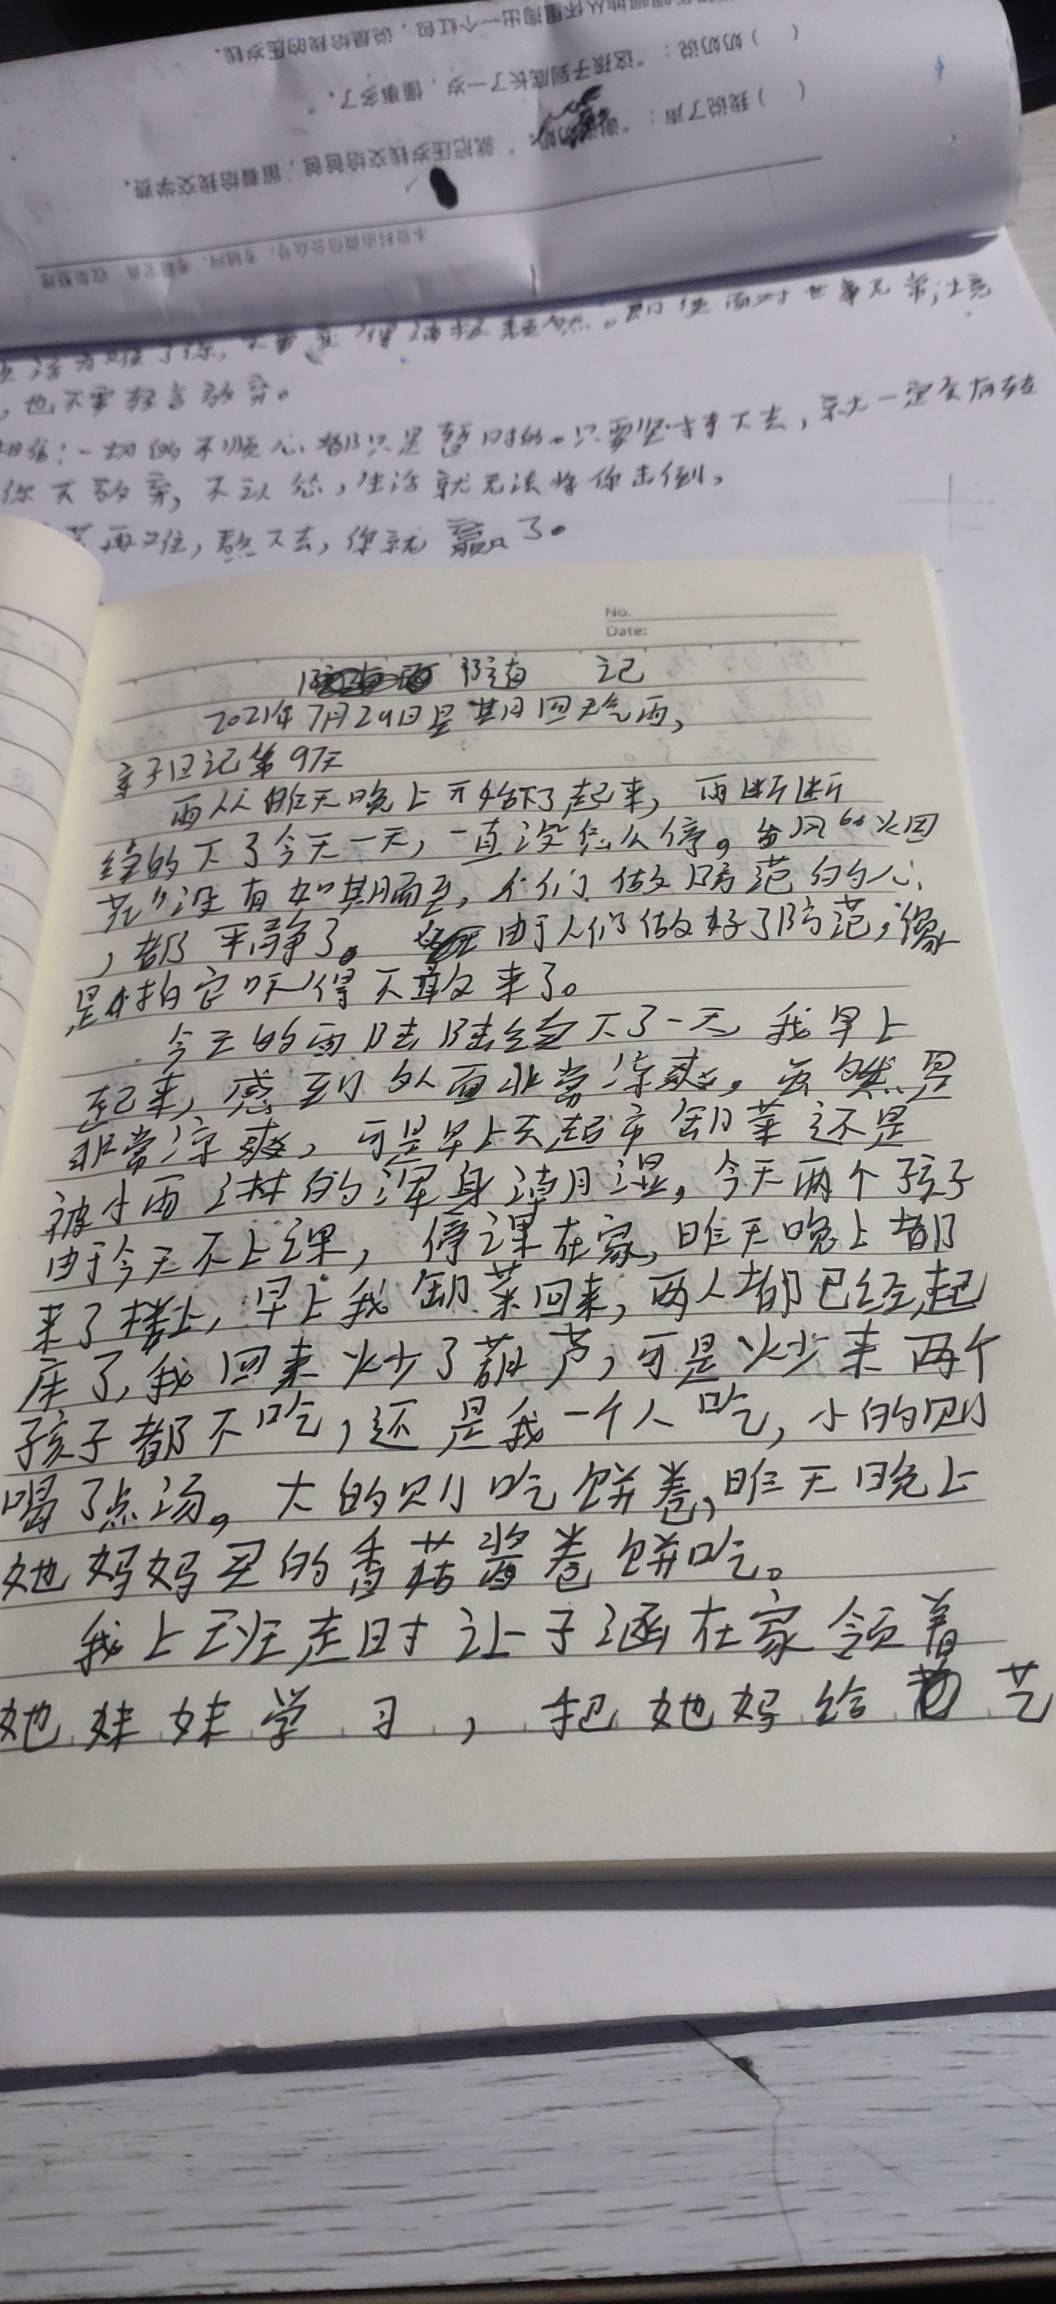 掏出一个红包，说是给我的压岁钱。
（ ）奶奶说：“这孩子到底长了一岁，懂事多了。”
（ ）我说了声：“谢谢奶奶。”就把压岁钱交给爸爸，留着给我交学费。
，也不要轻言放弃。
相信：一切的不顺心都只是暂时的。只要坚持下去，就一定会有转
你不放弃，不认怂，生活就无法将你击倒，
再难，熬下去，你就赢了。
No.
Date:
随记
2021年7月29日星期四天气雨，
亲子日记第97天
雨从昨天晚上开始下了起来，雨断断
续的下了今天一天，一直没怎么停。台风“火因
花”没有如期而至，人们做防范的心
，都平静了。由于人们做好了防范，像
是怕它吓得不敢来了。
今天的雨陆陆续下了一天，我早上
起来，感到外面非常凉爽，虽然是
非常凉爽，可是早上去超市卸菜还是
被小雨淋的浑身清湿，今天两个孩子
由于今天不上课，停课在家，昨天晚上都
来了楼上，早上我卸菜回来，两人都已经起
床了，我回来炒了葫芦，可是炒来两个
孩子都不吃，还是我一个人吃，小的则
喝了点汤。大的则吃饼卷，昨天晚上
她妈妈买的香菇酱卷饼吃。
我上班走时让子涵在家领着
她妹妹学习，把她妈给艺